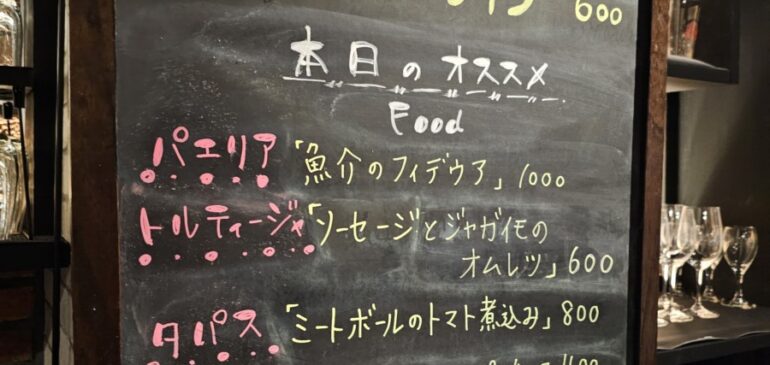 600
本日のオススメ
Food
パエリア「魚介のフィデウア」1000
トルティージャ「ソーセージとジャガイモの
オムレツ」600
タパス「ミートボールのトマト煮込み」800